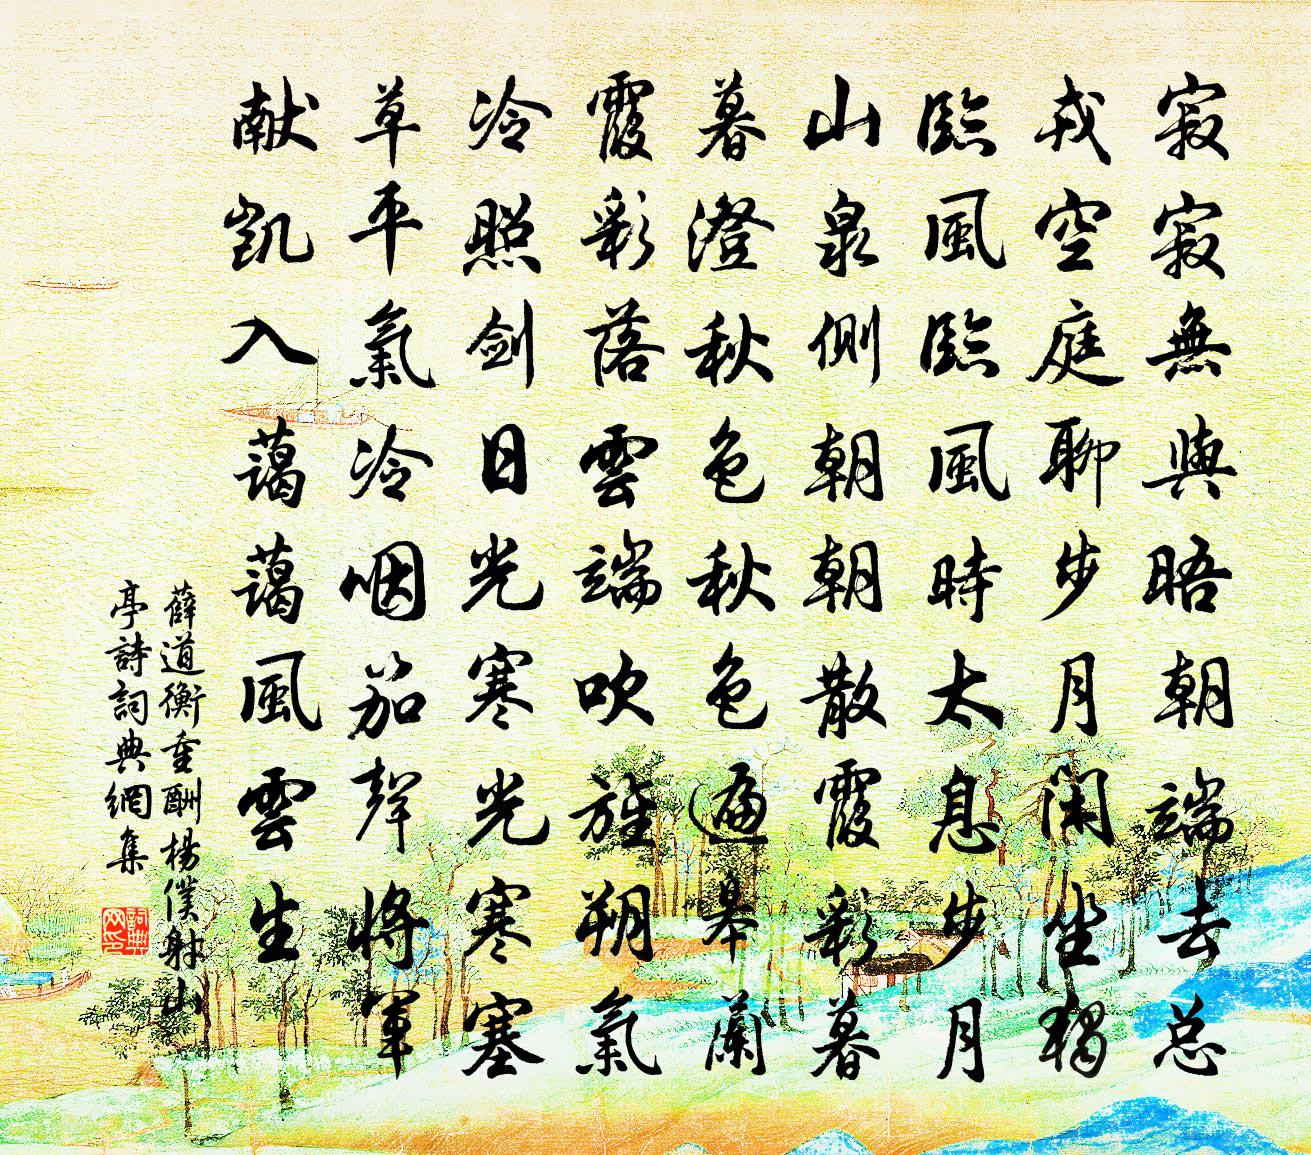 寂寂無與晤朝端去总
戎空庭聊步月閑坐獨
臨風臨風時太息步月
山泉側朝朝散霞彩暮
暮澄秋色秋色遍皋蘭
霞彩落雲端吹旌朔氣
冷照剑日光寒光寒塞
草平氣冷咽笳聲將軍
献凯入藹藹風雲生
薛道衡重酬楊僕射山
亭詩詞典網集
詞典
网印